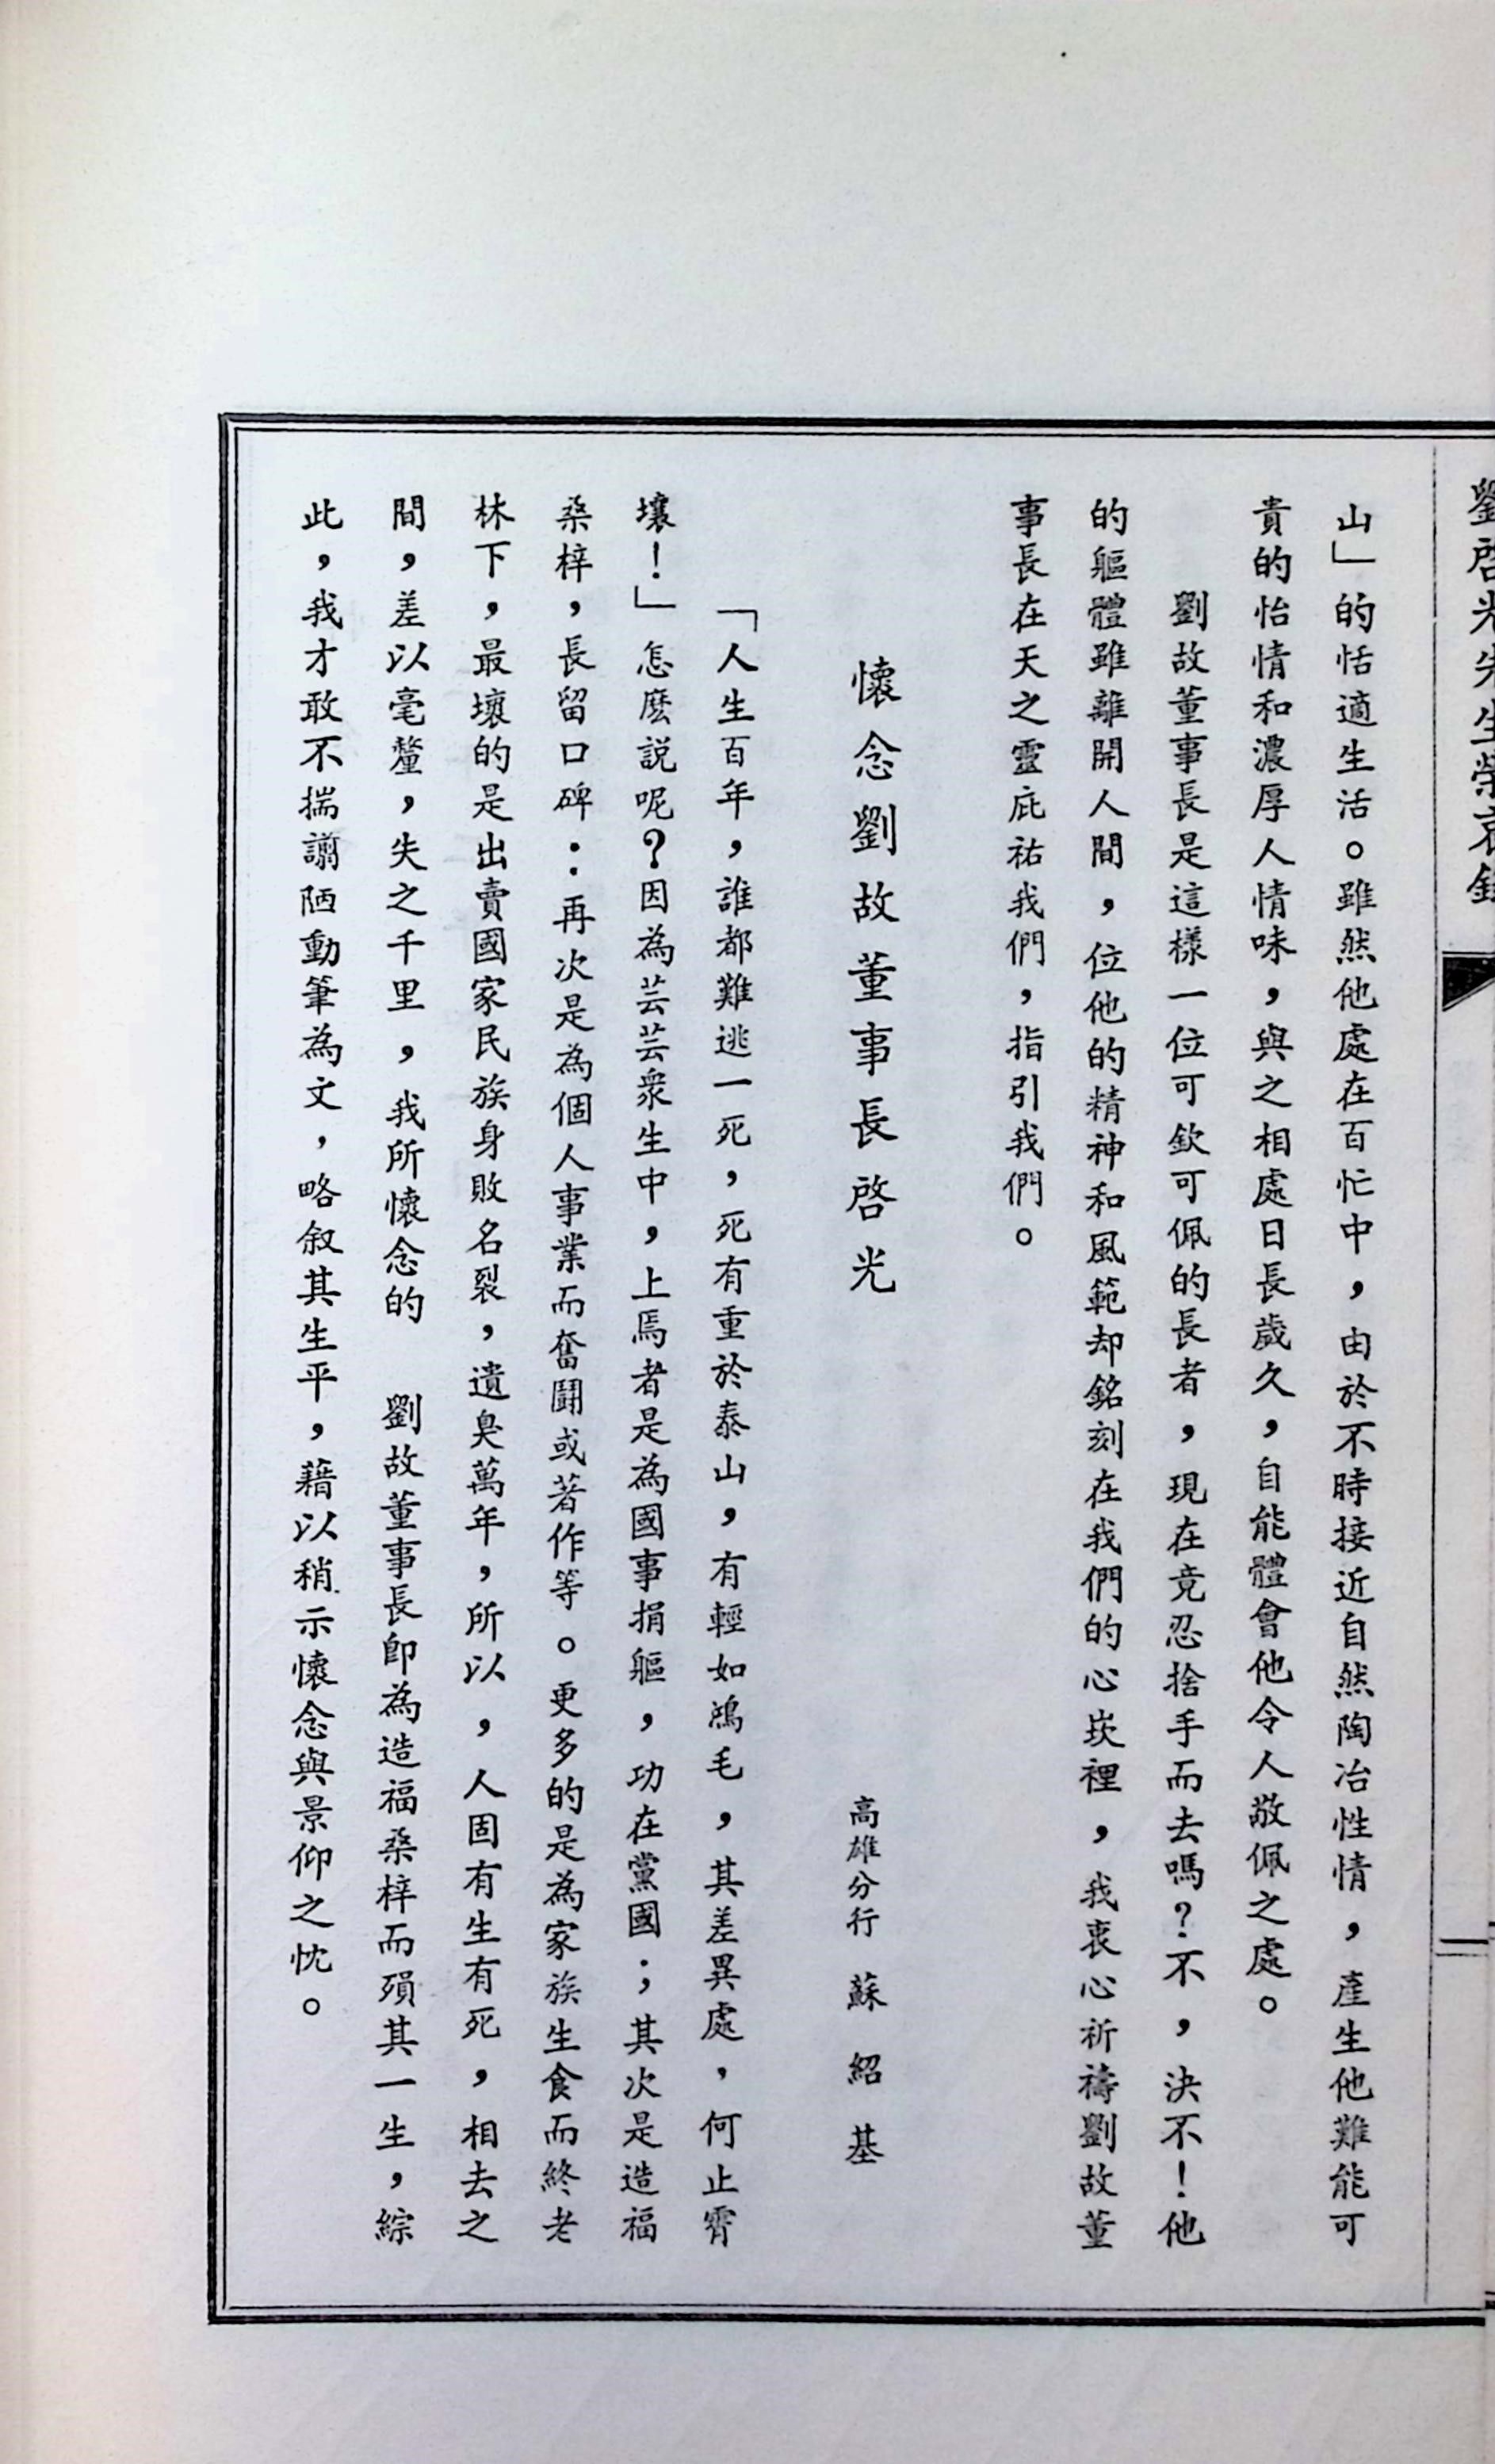 劉啓光先生榮哀錄
山」的恬適生活。雖然他處在百忙中，由於不時接近自然陶冶性情，產生他難能可
貴的怡情和濃厚人情味，與之相處日長歲久，自能體會他令人敬佩之處。
劉故董事長是這樣一位可欽可佩的長者，現在竟忍捨手而去嗎？不，決不！他
的軀體雖離開人間，位他的精神和風範却銘刻在我們的心崁裡，我衷心祈禱劉故董
事長在天之靈庇祐我們，指引我們。
懷念劉故董事長啓光
高雄分行 蘇紹基
「人生百年，誰都難逃一死，死有重於泰山，有輕如鴻毛，其差異處，何止霄
壤！」怎麽説呢？因為芸芸衆生中，上焉者是為國事捐軀，功在黨國；其次是造福
桑梓，長留口碑：再次是為個人事業而奮鬪或著作等。更多的是為家族生食而終老
林下，最壞的是出賣國家民族身敗名裂，遺臭萬年，所以，人固有生有死，相去之
間，差以毫釐，失之千里，我所懷念的 劉故董事長卽為造福桑梓而殞其一生，綜
此，我才敢不揣譾陋動筆為文，略叙其生平，藉以稍示懷念與景仰之忱。